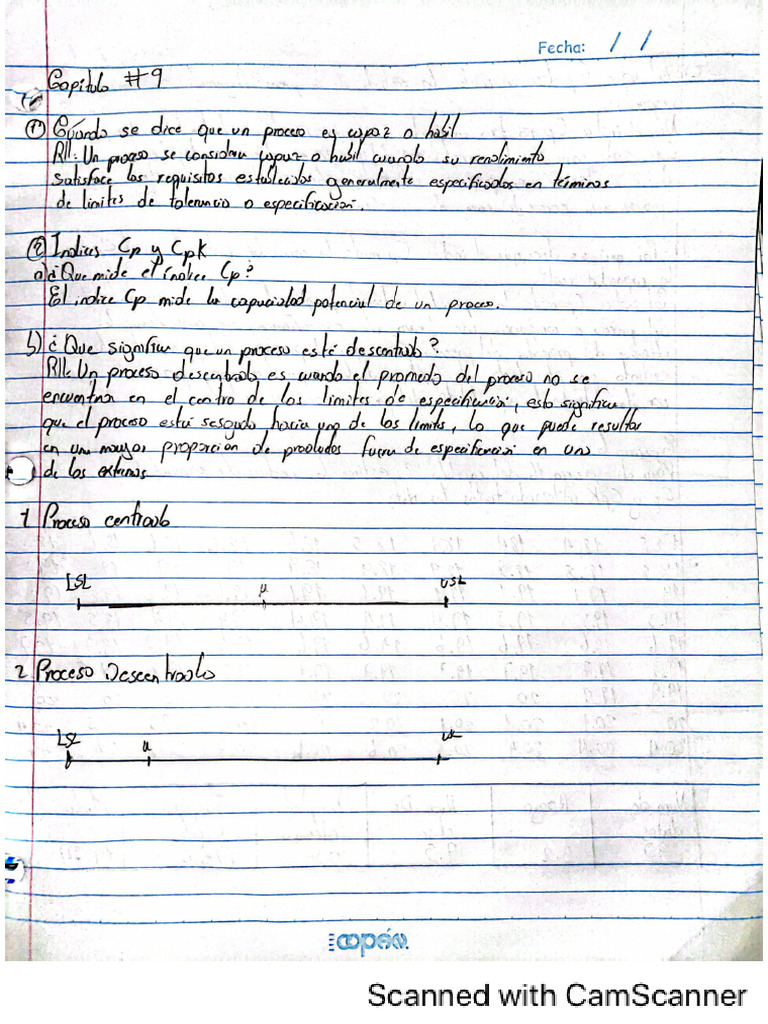 Fecha: / /
Capitulo #9
① Cuándo se dice que un proceso es capaz o habil
R//: Un proceso se considera capaz o habil cuando su rendimiento
satisface los requisitos establecidos generalmente especificados en términos
de limites de tolerancia o especificación.
② Indices Cp y CpK
a) ¿Que mide el índice Cp?
El indice Cp mide la capacidad potencial de un proceso.
b) ¿Que significa que un proceso esté descentrado?
R//: Un proceso descentrado es cuando el promedio del proceso no se
encuentra en el centro de los limites de especificación, esto significa
que el proceso está sesgado hacia uno de los limites, lo que puede resultar
en una mayor proporción de productos fuera de especificación en uno
de los extremos
1 Proceso centrado
LSL μ USL
2 Proceso Descentrado
LSL μ USL
copán
Scanned with CamScanner